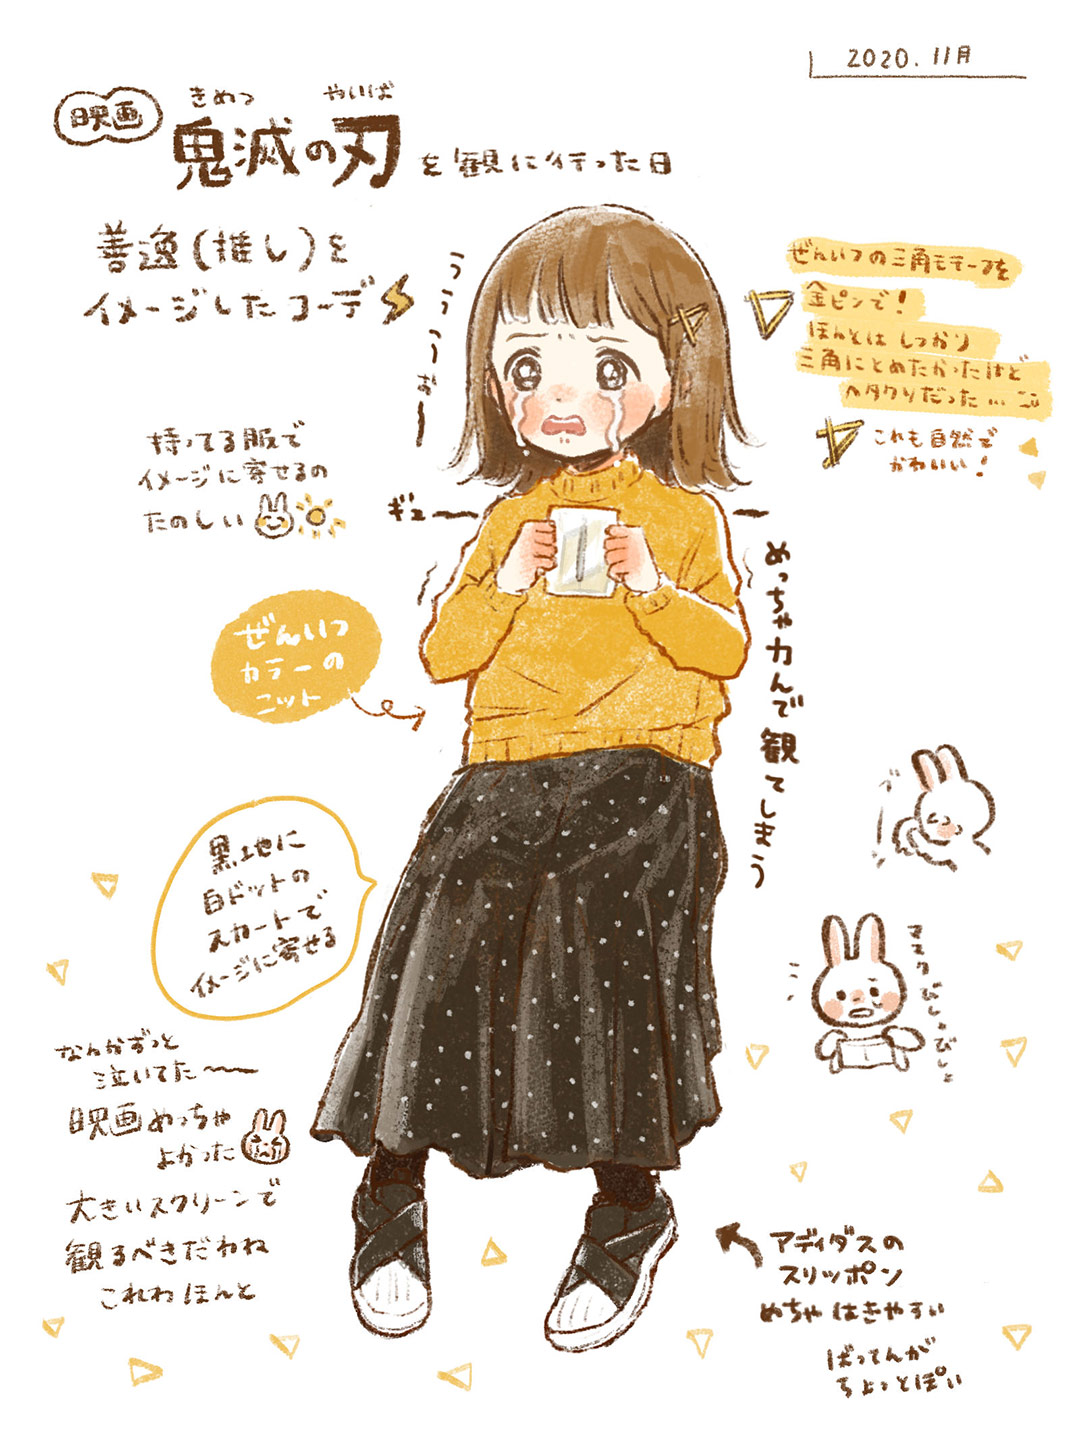 2020.11月
映画
きめつ やいば
鬼滅の刃を観に行った日
善逸(推し)を
イメージしたコーデ
うううぅぉー
ぜんいつの三角モチーフを
金ピンで!
ほんとはしっかり
三角にとめたかったけど
ヘタクソだった…
これも自然で
かわいい!
持ってる服で
イメージに寄せるの
たのしい
ギュー
めっちゃ力んで観てしまう
ぜんいつ
カラーの
ニット
黒地に
白ドットの
スカートで
イメージに寄せる
マスクびしょびしょ
なんかずっと
泣いてた〜
映画めっちゃ
よかった
大きいスクリーンで
観るべきだわね
これわほんと
アディダスの
スリッポン
めちゃはきやすい
ばってんが
ちょっとぽい